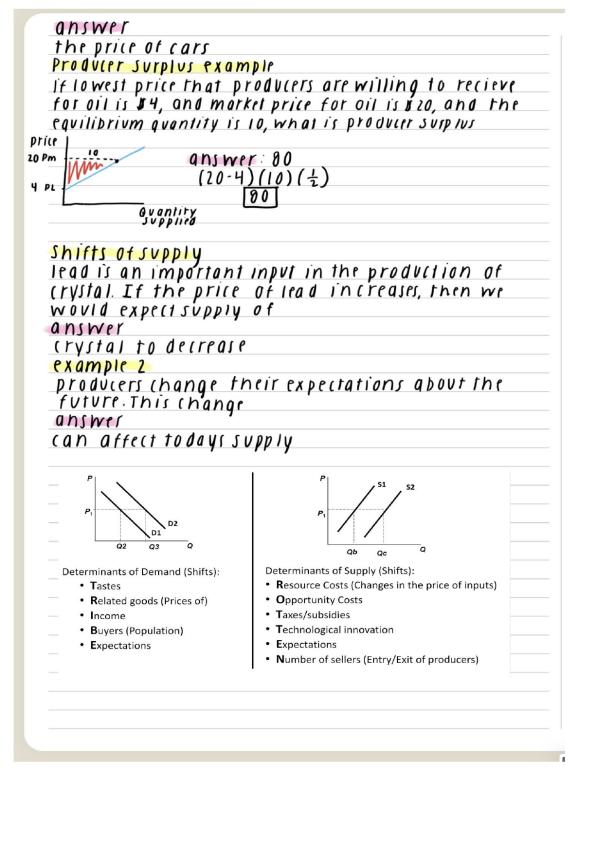 answer
the price of cars
Producer surplus example
If lowest price that producers are willing to recieve
for oil is $4, and market price for oil is $20, and the
equilibrium quantity is 10, what is producer surplus
price
20 Pm
10
4 PL
Quantity
supplied
answer: 80
(20-4)(10)(½)
80
Shifts of supply
lead is an important input in the production of
crystal. If the price of lead increases, then we
would expect supply of
answer
crystal to decrease
example 2
producers change their expectations about the
future. This change
answer
can affect todays supply
P
P₁
D2
D1
Q2 Q3 Q
Determinants of Demand (Shifts):
• Tastes
• Related goods (Prices of)
• Income
• Buyers (Population)
• Expectations
P
S1
S2
P₁
Qb Qc Q
Determinants of Supply (Shifts):
• Resource Costs (Changes in the price of inputs)
• Opportunity Costs
• Taxes/subsidies
• Technological innovation
• Expectations
• Number of sellers (Entry/Exit of producers)